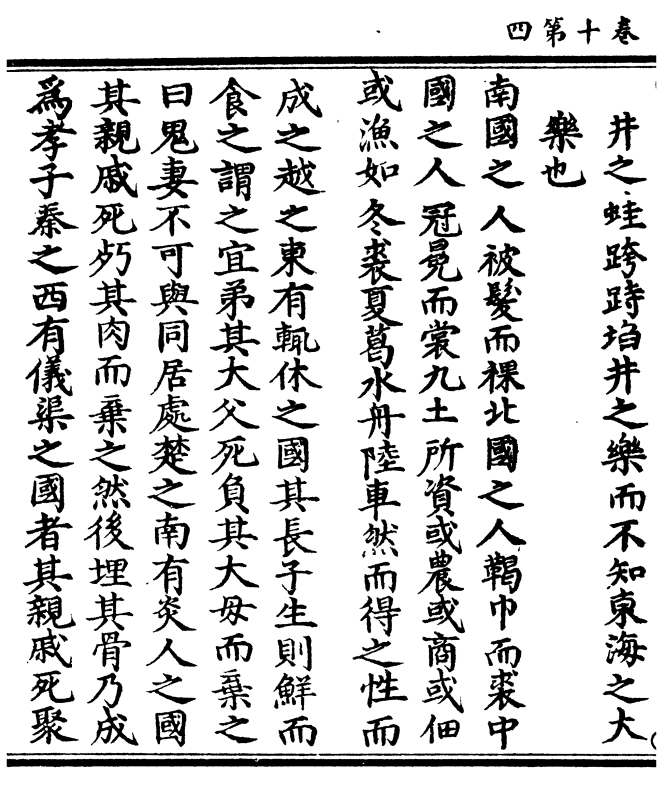 卷十第四
井之蛙跨跱埳井之樂而不知東海之大
樂也
南國之人被髮而裸北國之人鞨巾而裘中
國之人冠冕而裳九土所資或農或商或佃
或漁如冬裘夏葛水舟陸車然而得之性而
成之越之東有輒休之國其長子生則鮮而
食之謂之宜弟其大父死負其大母而棄之
曰鬼妻不可與同居處楚之南有炎人之國
其親戚死㱙其肉而棄之然後埋其骨乃成
爲孝子秦之西有儀渠之國者其親戚死聚